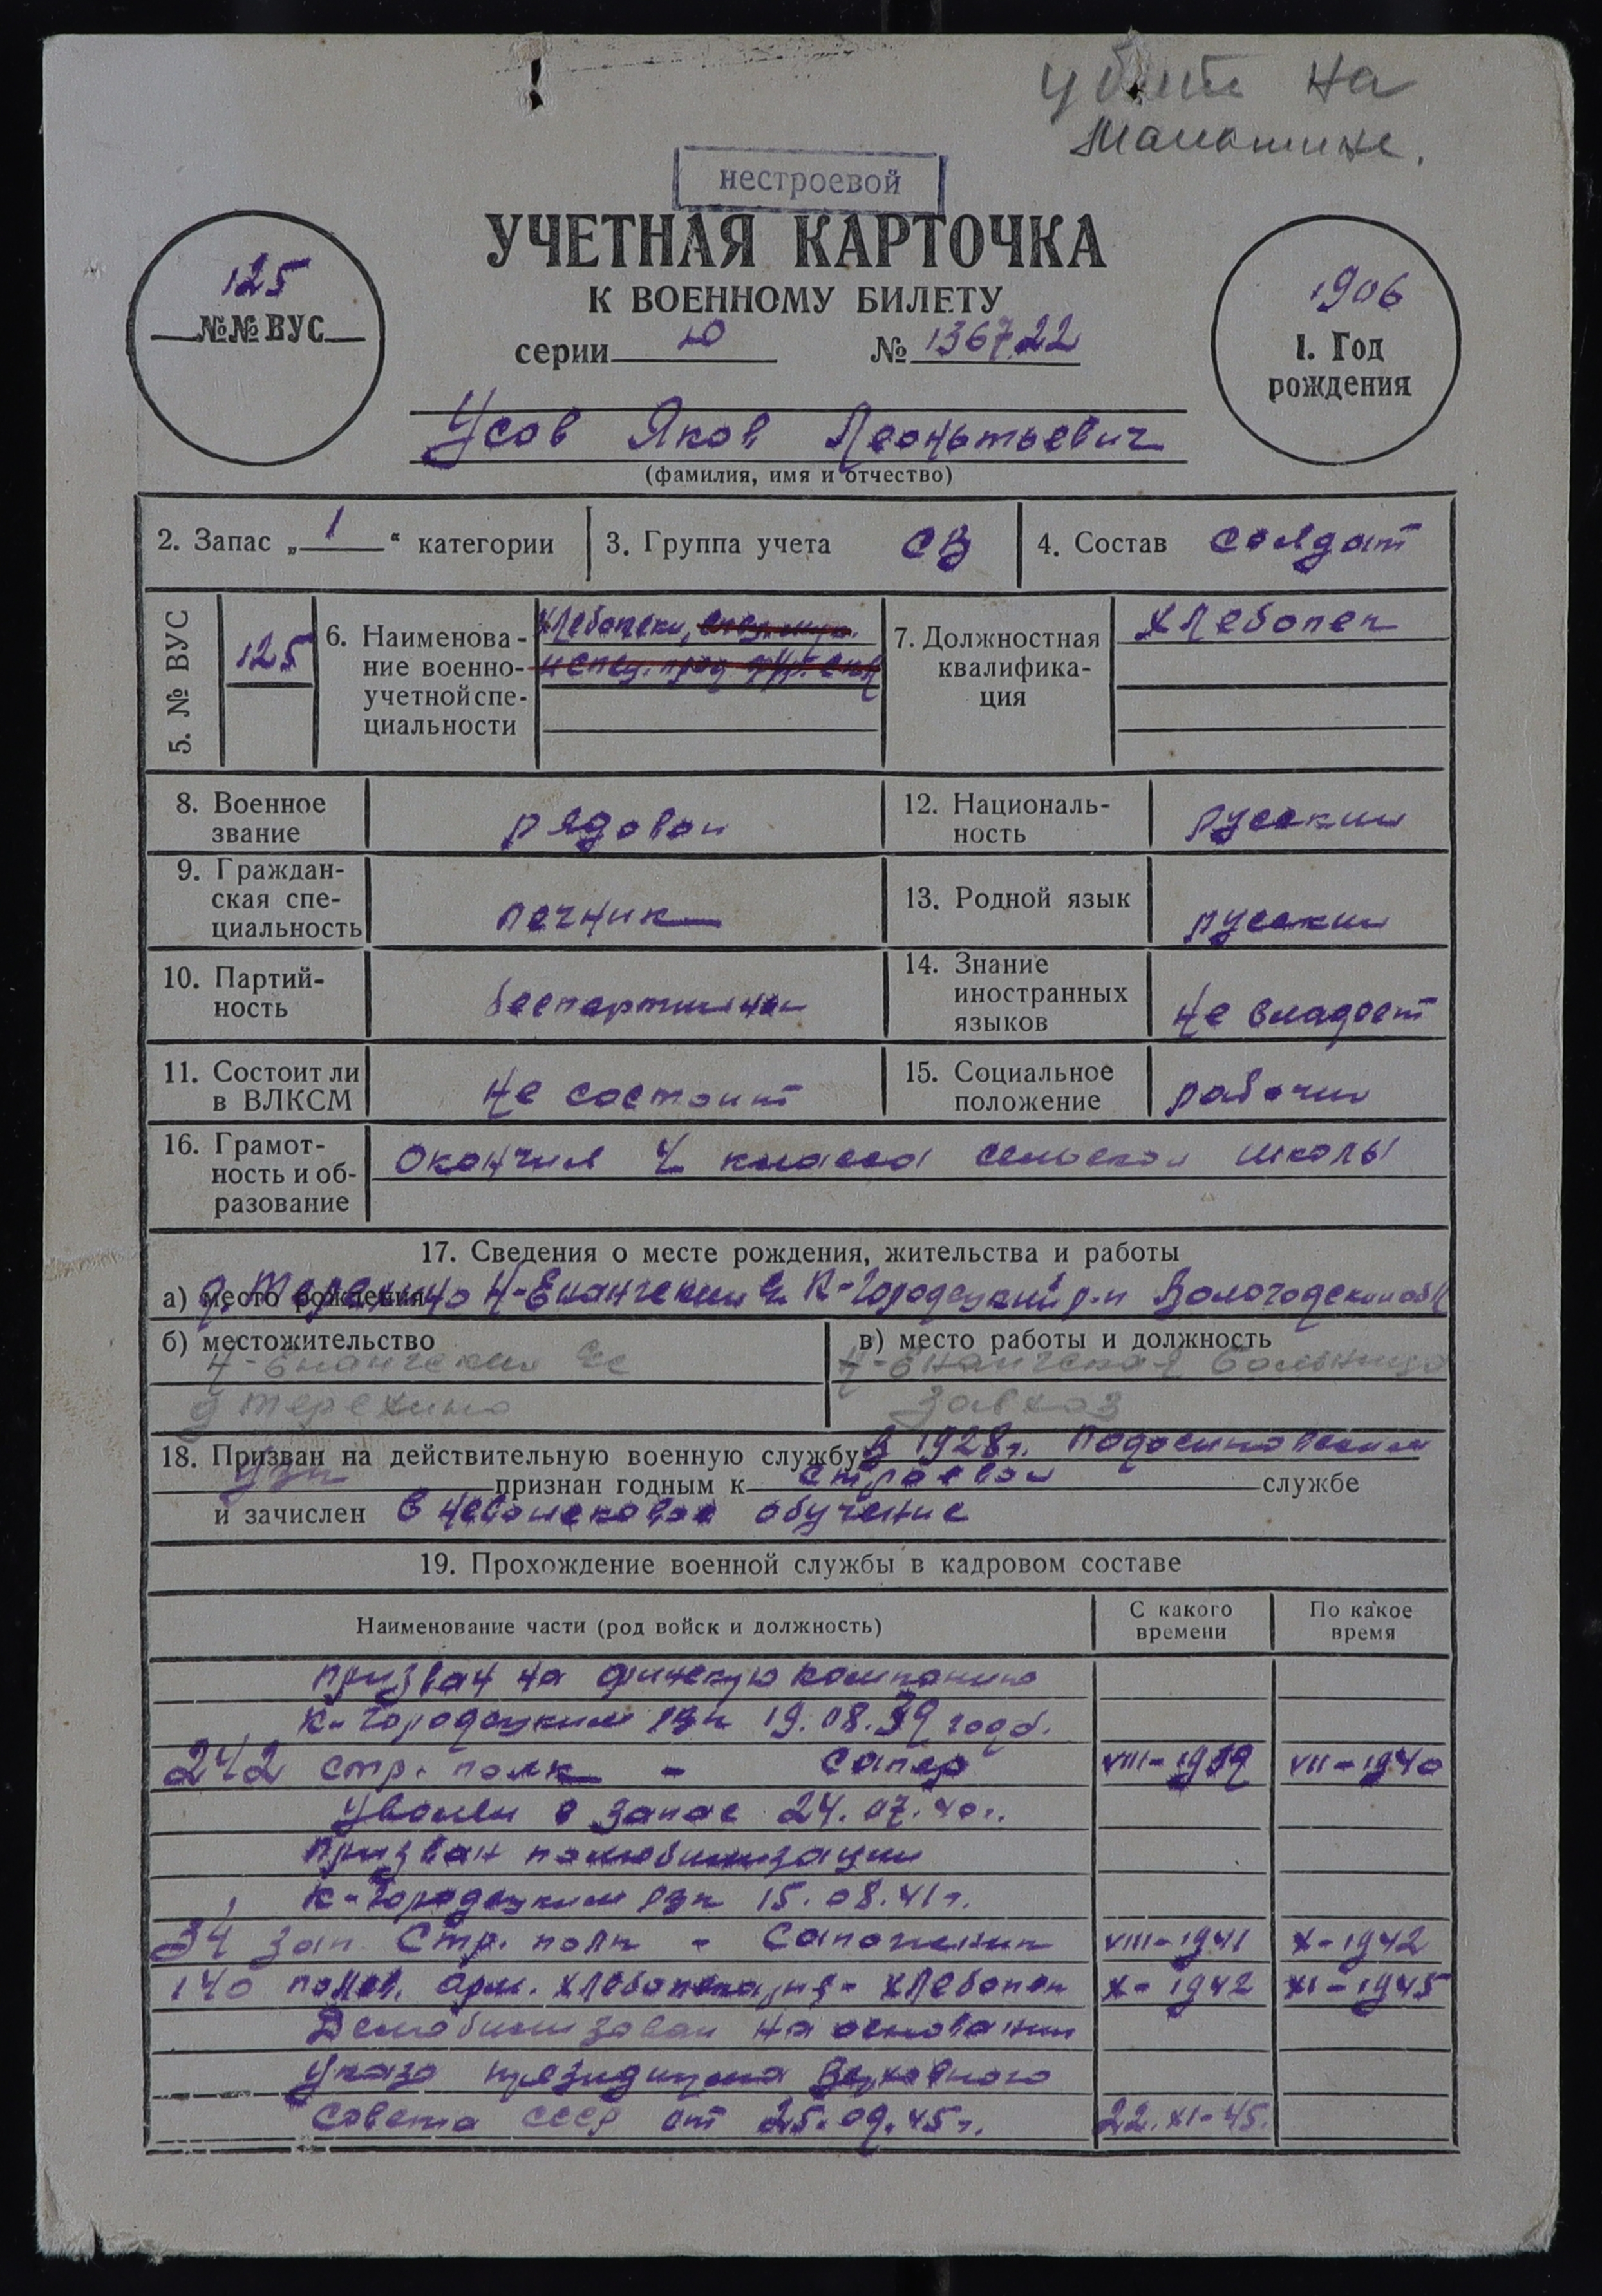 убит на
машине.
нестроевой
УЧЕТНАЯ КАРТОЧКА
К ВОЕННОМУ БИЛЕТУ
серии Ю № 136722
125
№№ ВУС
1906
1. Год
рождения
Усов Яков Леонтьевич
(фамилия, имя и отчество)
2. Запас „ 1 “ категории 3. Группа учета СВ 4. Состав солдат
5. № ВУС
125
6. Наименова-
ние военно-
учетной спе-
циальности
Хлебопеки,
7. Должностная
квалифика-
ция
хлебопек
8. Военное
звание
рядовой
12. Националь-
ность
русский
9. Граждан-
ская спе-
циальность
печник
13. Родной язык
русский
10. Партий-
ность
беспартийный
14. Знание
иностранных
языков
не владеет
11. Состоит ли
в ВЛКСМ
не состоит
15. Социальное
положение
рабочий
16. Грамот-
ность и об-
разование
окончил 4 класса сельской школы
17. Сведения о месте рождения, жительства и работы
а) место рождения д. Терехино Н-Енангский К-Городецкий р-н Вологодской обл
б) местожительство
Н-Енангский с/с
д Терехино
в) место работы и должность
Н-Енангская больница
Завхоз
18. Призван на действительную военную службу в 1928г. Подосиновским
рвк признан годным к строевой службе
и зачислен в невойсковое обучение
19. Прохождение военной службы в кадровом составе
Наименование части (род войск и должность)
С какого
времени
По какое
время
призван на финскую компанию
К-Городецким рвк 19.08.39 года.
242 стр. полк - сапер VIII-1939 VII-1940
Уволен в запас 24.07.40г.
Призван помобилизации
К-Городецким рвк 15.08.41г.
34 зап. Стр. полк - Сапожник VIII-1941 X-1942
140 полев. арм. хлебопекарня - хлебопек X-1942 XI-1945
Демобилизован на основании
Указа президиума Верховного
Совета СССР от 25.09.45г. 22.XI-45.